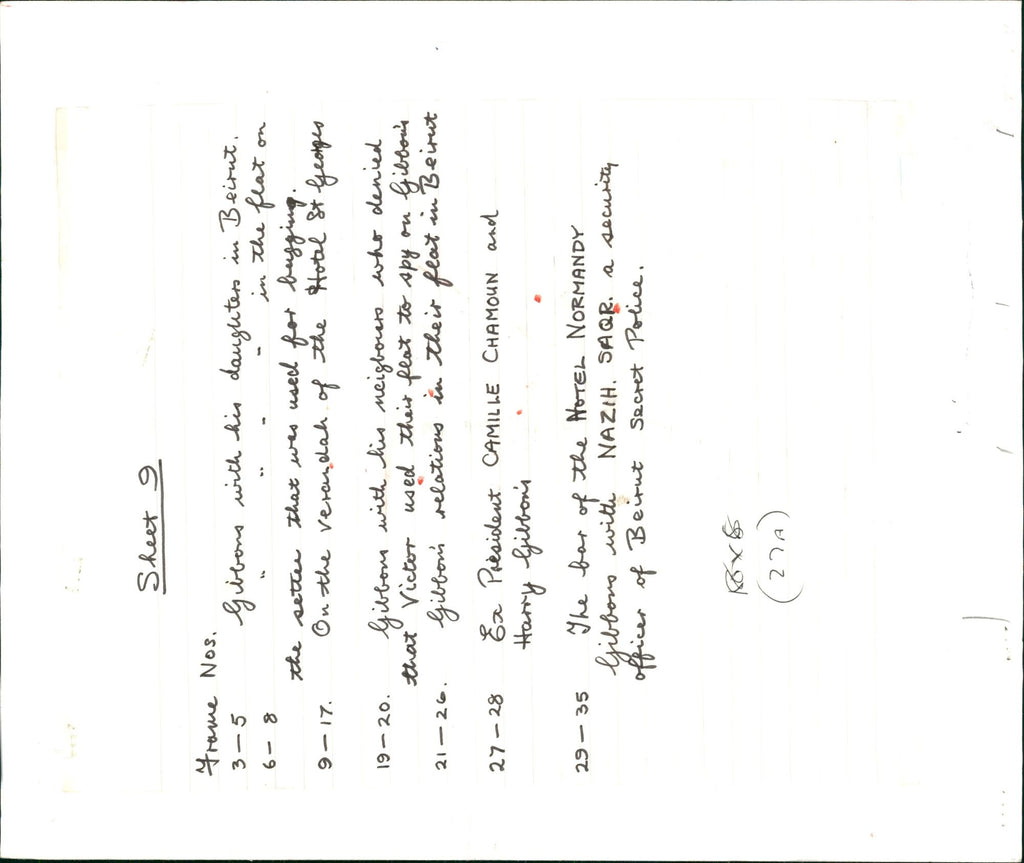 Sheet 9
Frame Nos.
3-5 Gibbons with his daughters in Beirut.
6-8 " " - - in the flat on
the settee that was used for bugging.
9-17. On the verandah of the Hotel St Georges
19-20. Gibbons with his neigbours who denied
that Victor used their flat to spy on Gibbons
21-26. Gibbons relations in their flat in Beirut
27-28 Ex President CAMILLE CHAMOUN and
Harry Gibbons
29-35 The bar of the HOTEL NORMANDY
Gibbons with NAZIH. SAQR. a security
officer of Beirut Secret Police.
(27A)